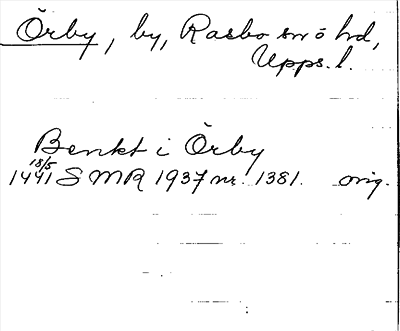 Örby, by, Rasbo sn o hd,
Upps. l.
Benkt i Örby
18/5
1441 SMR 1937 nr. 1381. orig.